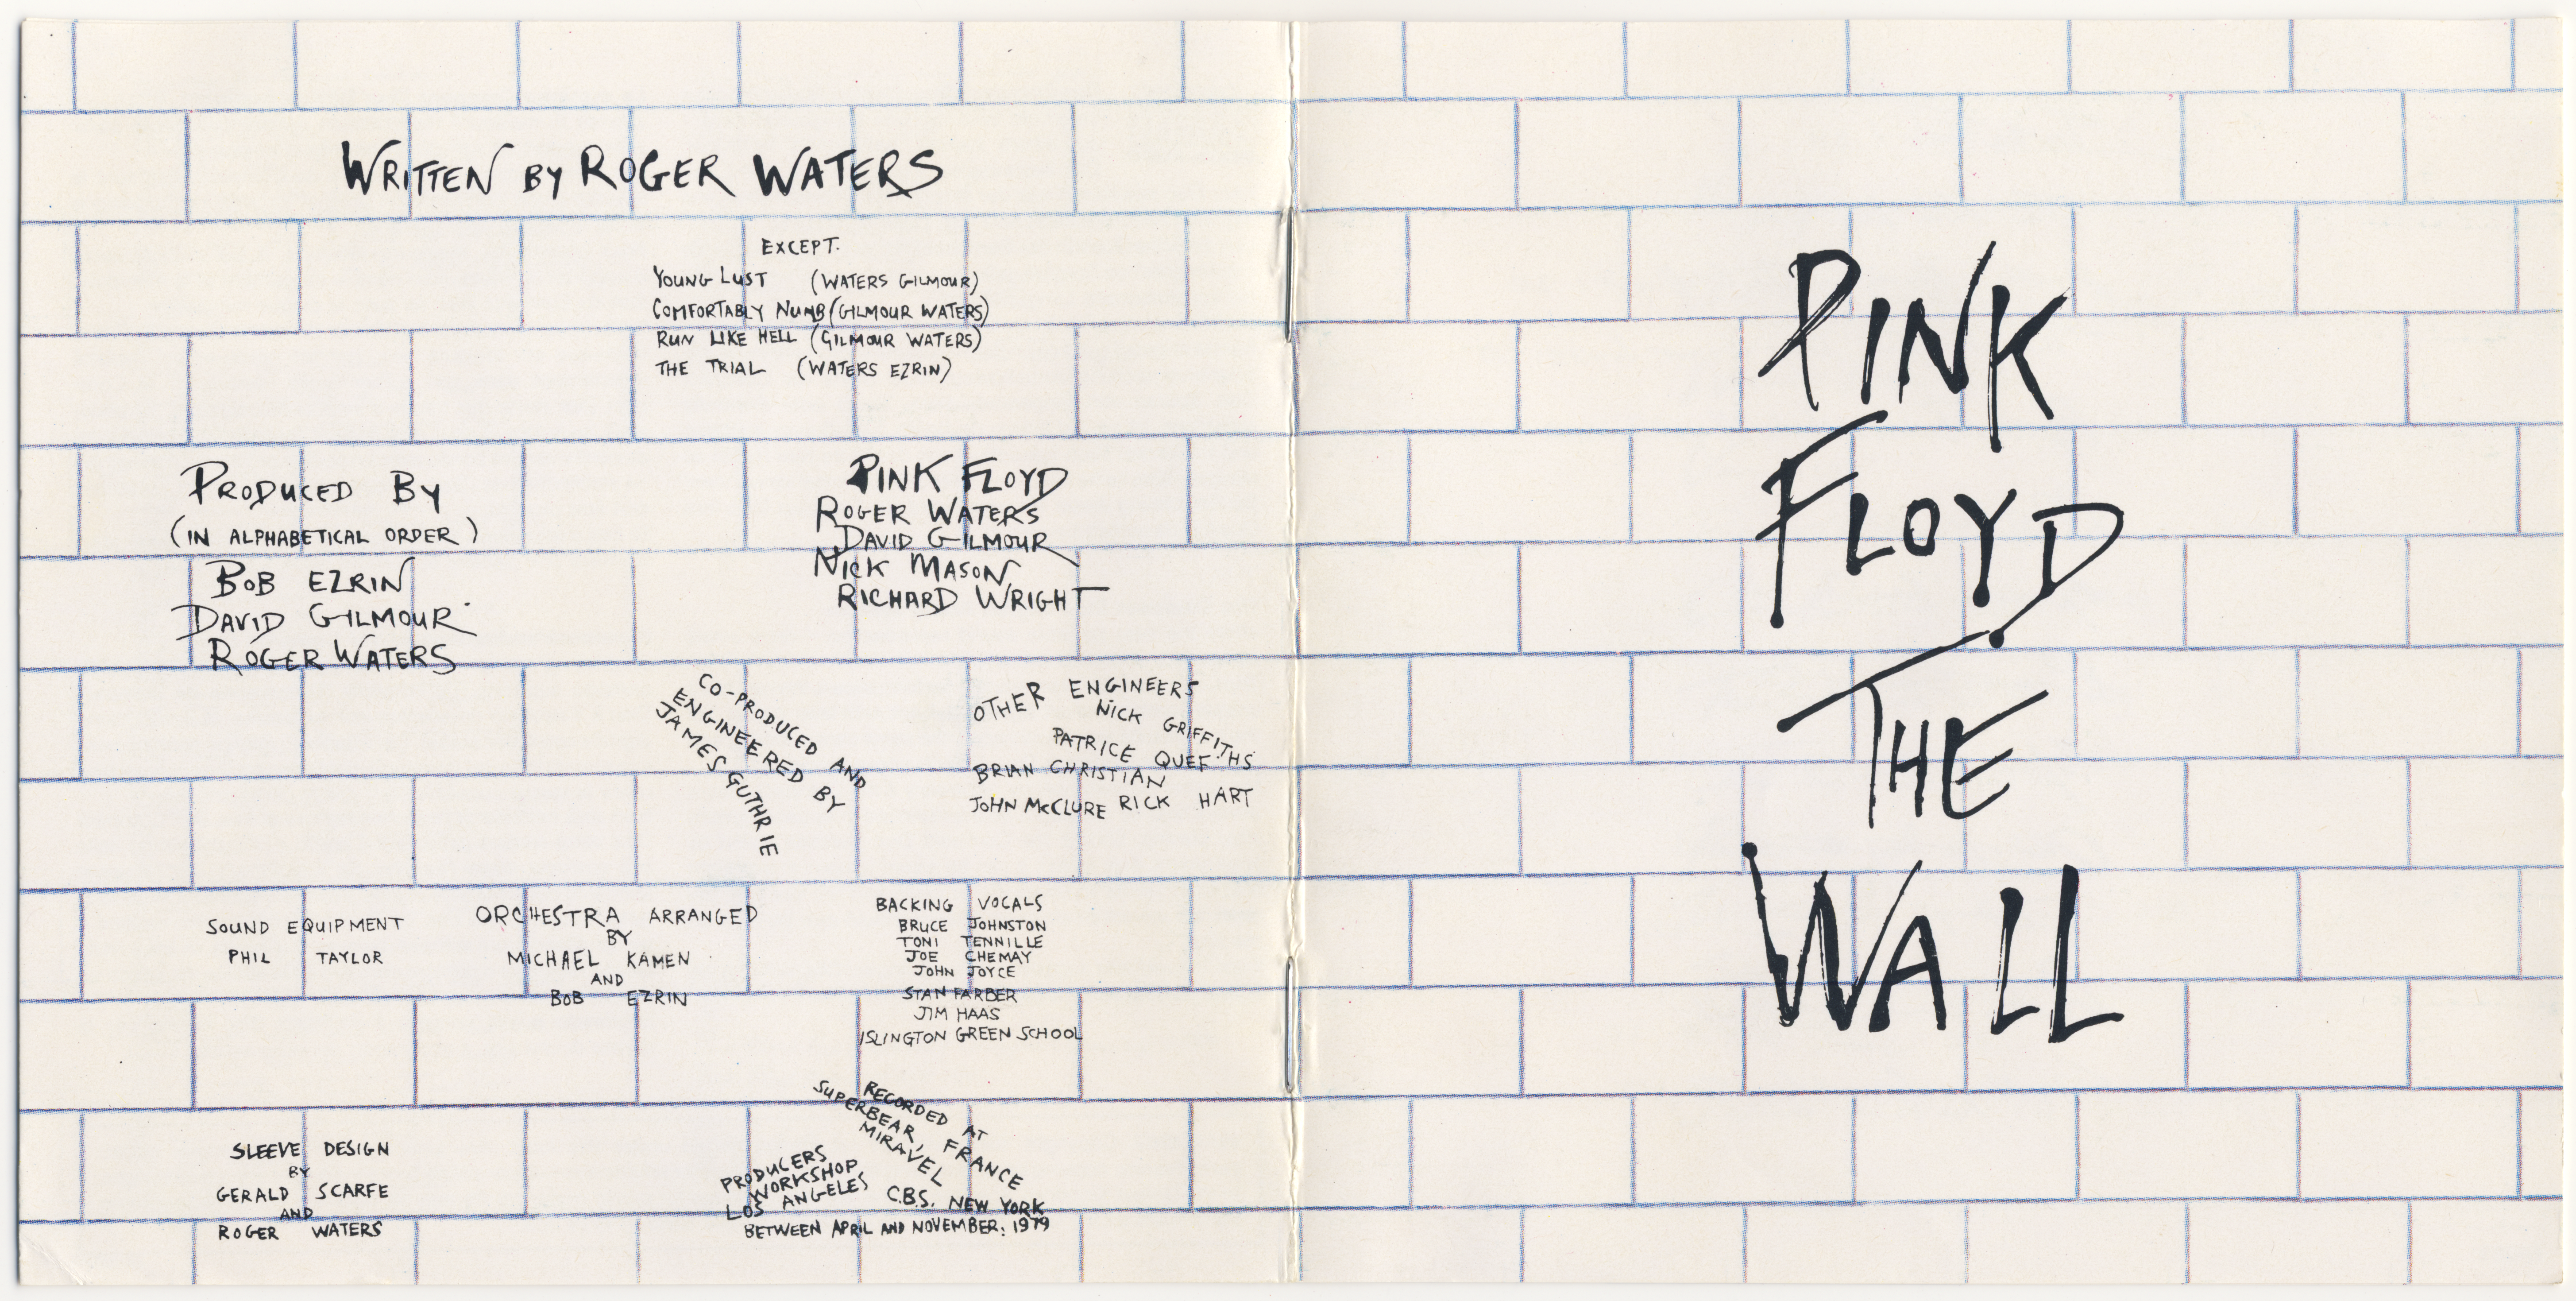 WRITTEN BY ROGER WATERS
EXCEPT.
YOUNG LUST (WATERS GILMOUR)
COMFORTABLY NUMB (GILMOUR WATERS)
RUN LIKE HELL (GILMOUR WATERS)
THE TRIAL (WATERS EZRIN)
PRODUCED BY
(IN ALPHABETICAL ORDER)
BOB EZRIN
DAVID GILMOUR
ROGER WATERS
PINK FLOYD
ROGER WATERS
DAVID GILMOUR
NICK MASON
RICHARD WRIGHT
CO-PRODUCED AND
ENGINEERED BY
JAMES GUTHRIE
OTHER ENGINEERS
NICK GRIFFITHS
PATRICE QUEF
BRIAN CHRISTIAN
JOHN McCLURE RICK HART
SOUND EQUIPMENT
PHIL TAYLOR
ORCHESTRA ARRANGED
BY
MICHAEL KAMEN
AND
BOB EZRIN
BACKING VOCALS
BRUCE JOHNSTON
TONI TENNILLE
JOE CHEMAY
JOHN JOYCE
STAN FARBER
JIM HAAS
ISLINGTON GREEN SCHOOL
SLEEVE DESIGN
BY
GERALD SCARFE
AND
ROGER WATERS
RECORDED AT
SUPERBEAR, FRANCE
MIRAVEL
PRODUCERS
WORKSHOP
LOS ANGELES
C.B.S. NEW YORK
BETWEEN APRIL AND NOVEMBER: 1979
PINK
FLOYD
THE
WALL